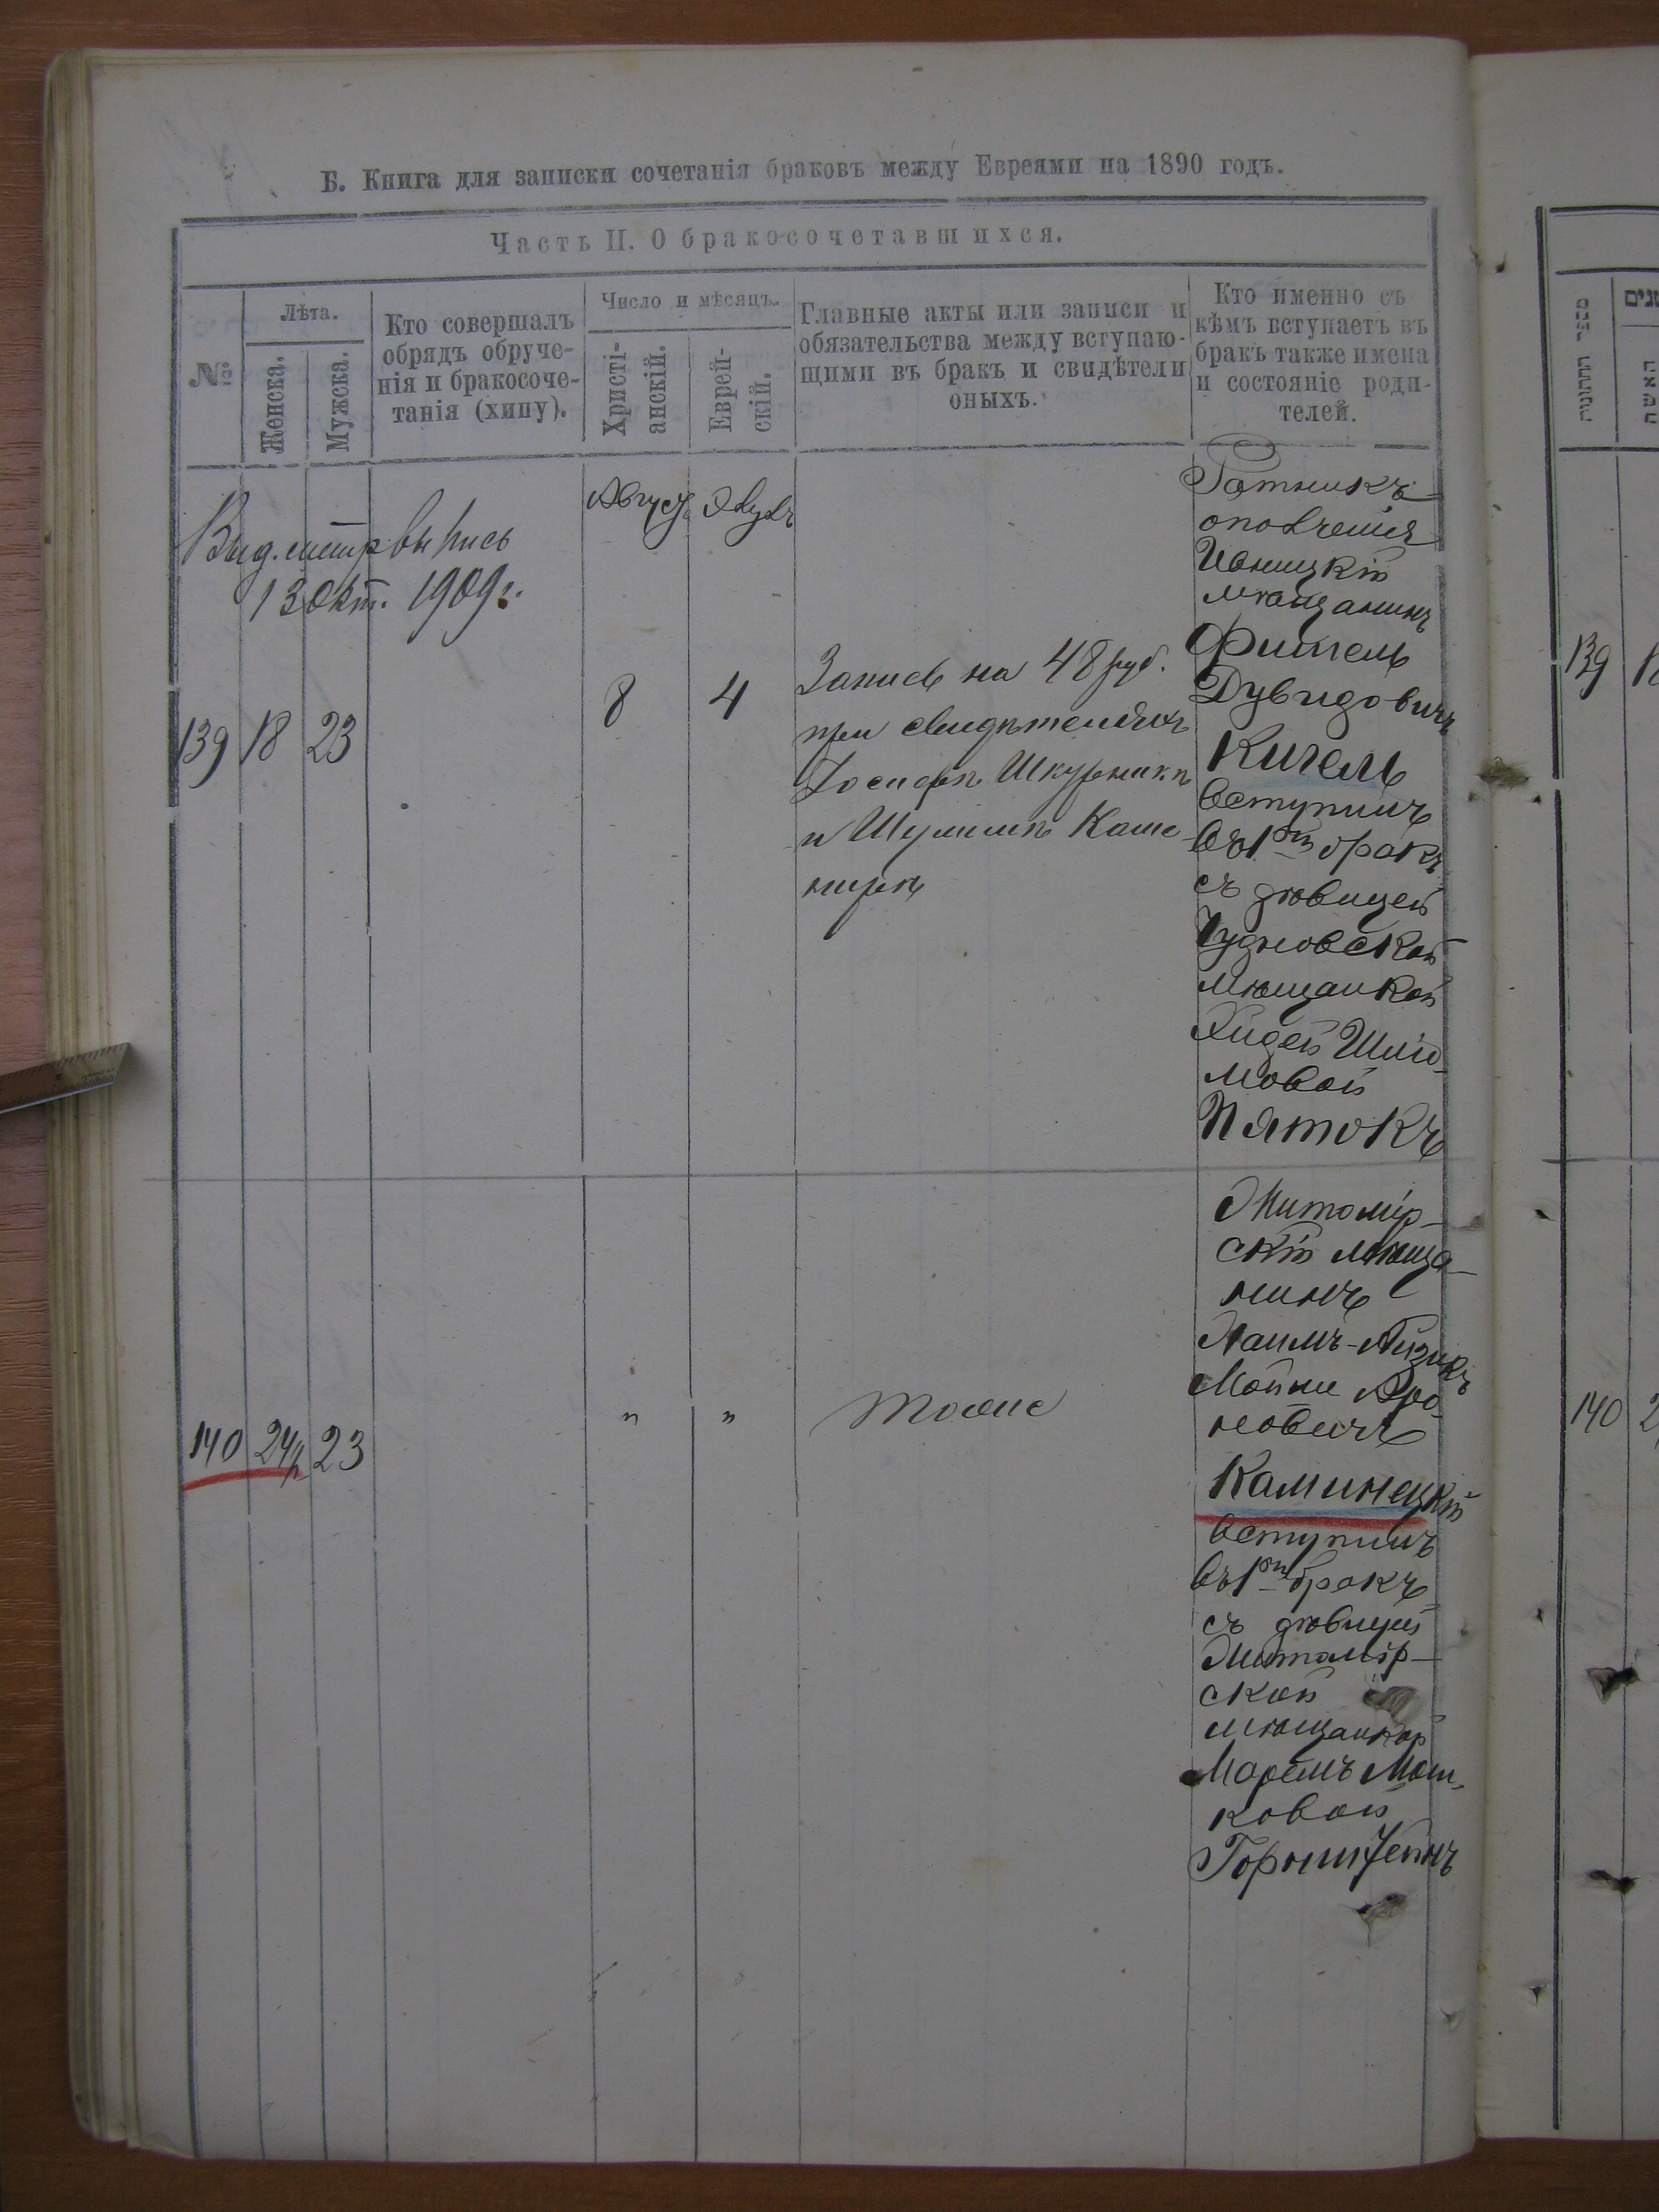 Б. Книга для записки сочетанія браковъ между Евреями на 1890 годъ.
Часть II. О бракосочетавшихся.
№
Лѣта.
Женска.
Мужска.
Кто совершалъ
обрядъ обруче-
нія и бракосоче-
танія (хипу).
Число и мѣсяцъ.
Христі-
анскій.
Еврей-
скій.
Главные акты или записи и
обязательства между вступаю-
щими въ бракъ и свидѣтели
оныхъ.
Кто именно съ
кѣмъ вступаетъ въ
бракъ также имена
и состояніе роди-
телей.
Выд. метр выпись
13 Окт. 1909 г.
Август Элулъ
139 18 23
8 4
Запись на 48 руб.
при свидѣтеляхъ
Іосифѣ Шкурникѣ
и Шулимѣ Каше
нирѣ
Ратникъ
ополченія
мѣщанинъ
Фишель
Дувидовичъ
Кигель
вступилъ
въ 1й бракъ
съ дѣвицей
Чудновской
мѣщанкой
Хидей Шлио-
мовой
Пятокъ
140 24 23
" "
тоже
Житомір-
скій мѣща-
нинъ
Хаимъ-Айзикъ
Мойше Аро-
новичъ
Каминецкій
вступилъ
въ 1й бракъ
съ дѣвицей
Житомір-
ской
мѣщанкой
Маремъ Мош-
ковой
Горништейнъ
מספר החתונות
האשה
139
140